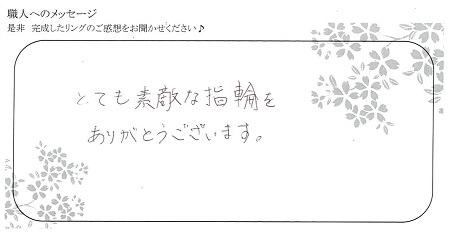 職人へのメッセージ
是非 完成したリングのご感想をお聞かせください♪
とても素敵な指輪を
ありがとうございます。